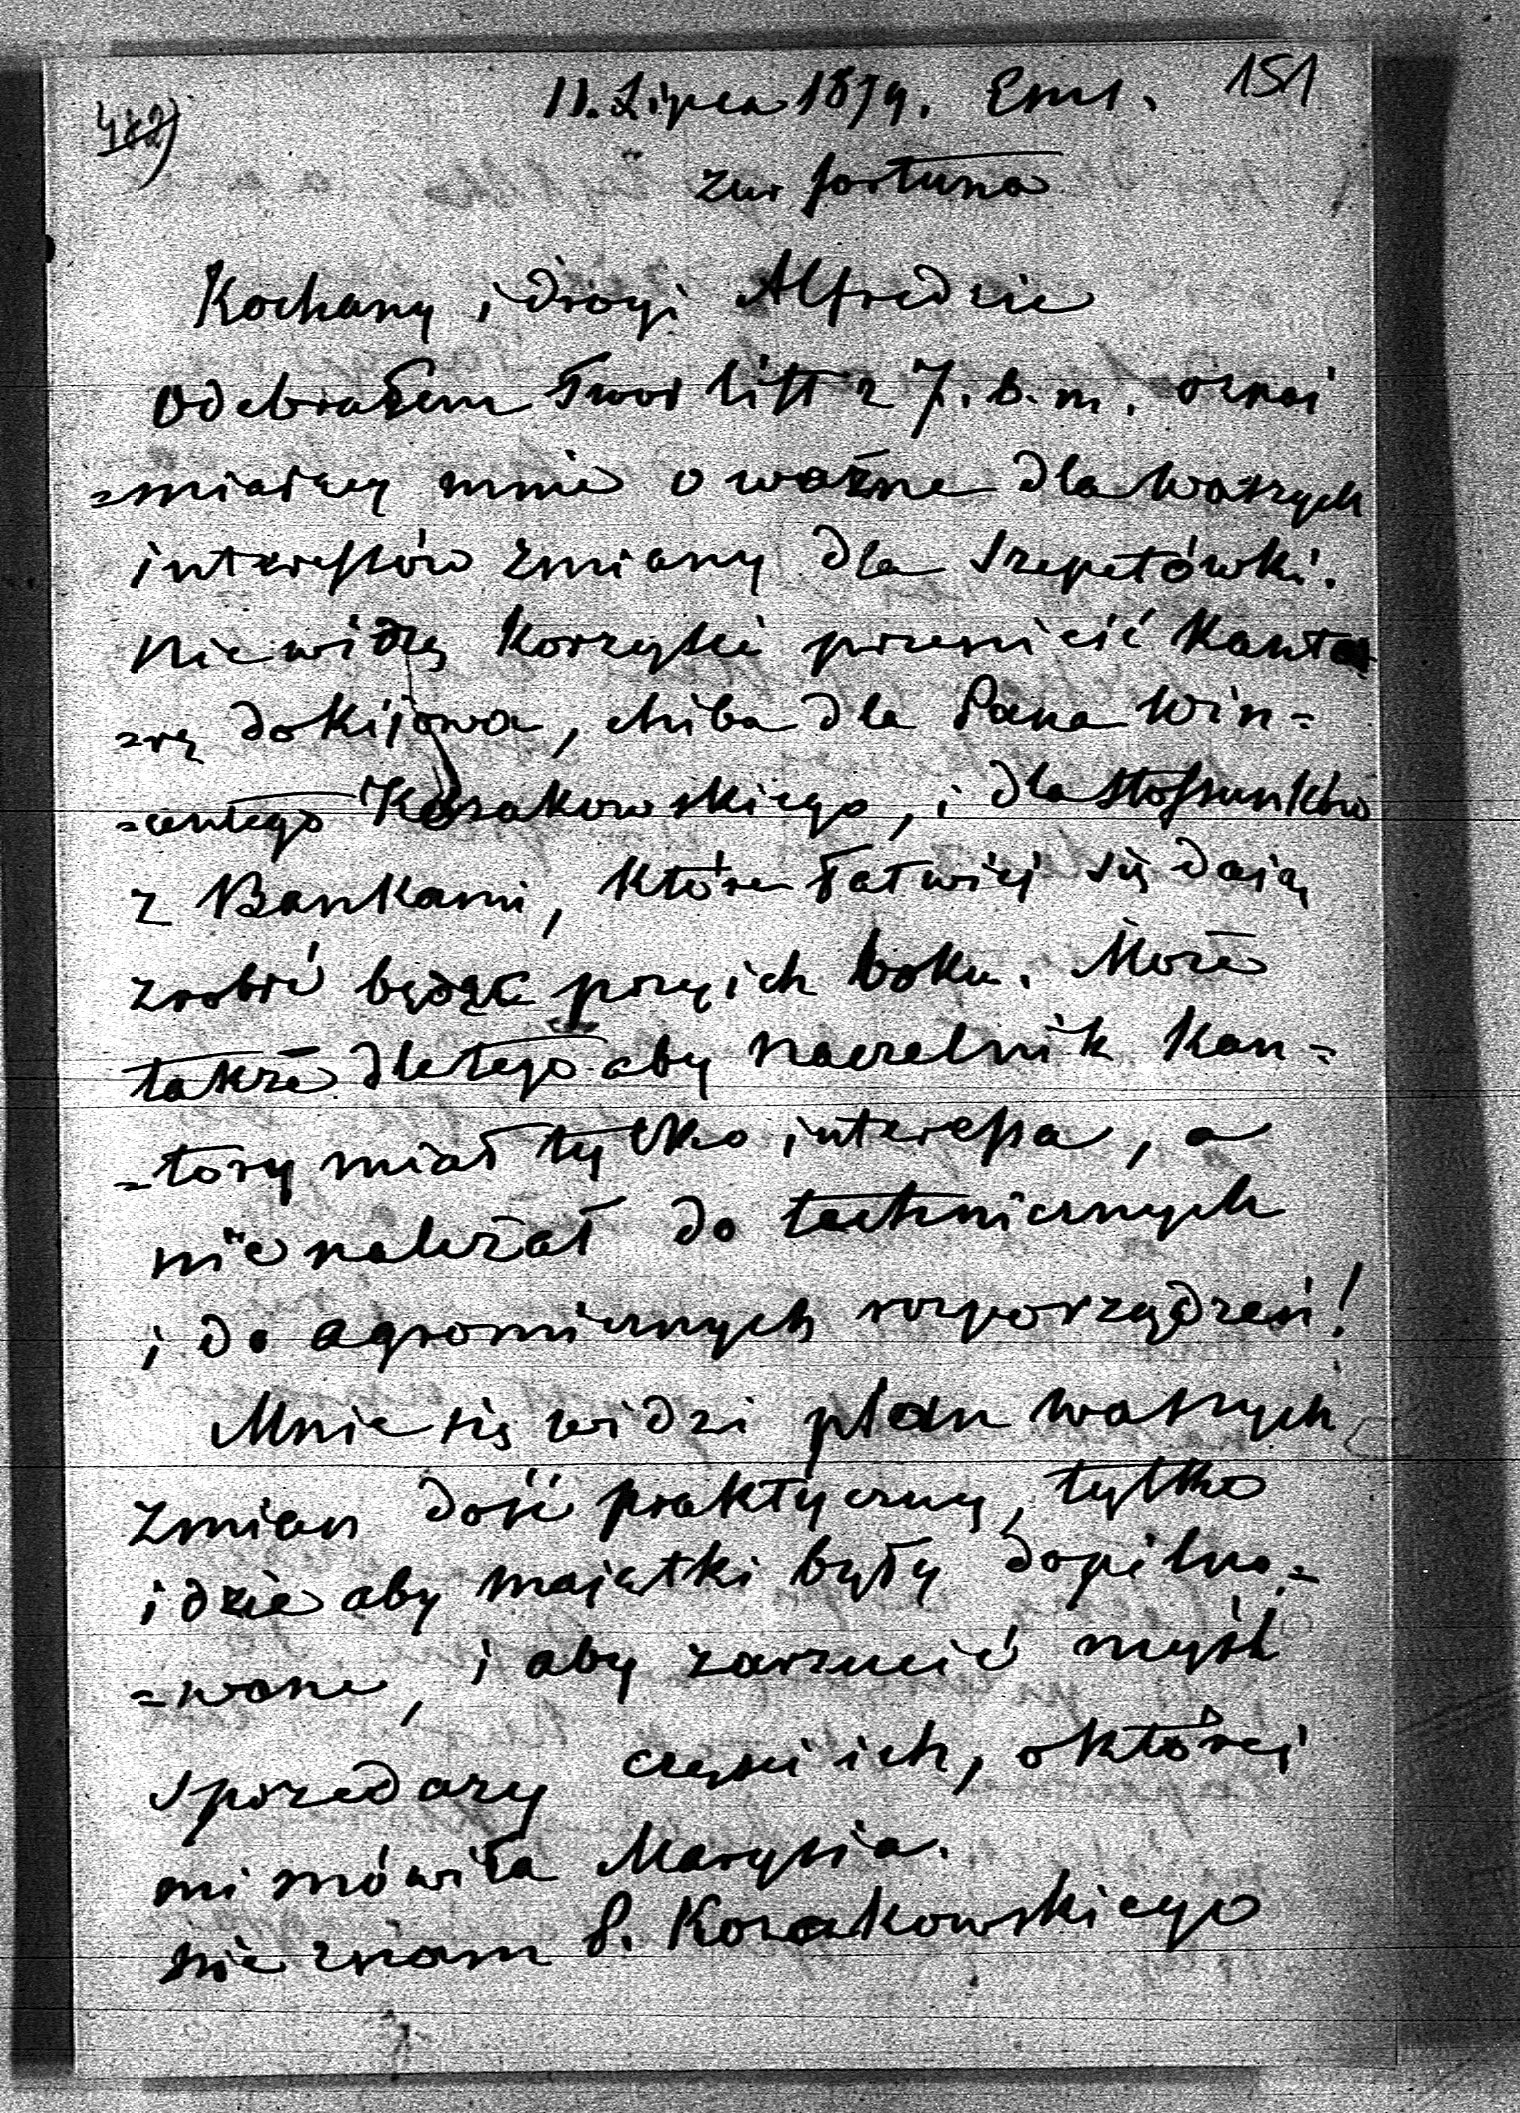 151
11. Lipca 1879. Ems.
zur fortuna
Kochany i drogi Alfredzie
Odebrałem twoi list z 7. b. m. oznai
=miaiący mnie o ważne dla waszych
interessów zmiany dla Szepetówki.
Nie widzę korzyści przenieść Kanto
=rę do Kijowa, chiba dla Pana Win=
=centego Kosakowskiego, i dla stossunków
z Bankami, które łatwiéj się daią
zrobić będąc przy ich boku. Może
także dletego aby naczelnik Kan=
=tory miał tylko interessa, a
nie należał do technicznych
i do agromicznych rozporządzeń!
Mnie się widzi plan waszych
zmian dość praktyczny, tylko
idzie aby maiątki były dopilno=
=wane, i aby zarzucić myśl
sprzedaży części ich, o któréj
mi mówiła Marysia.
nie znam P. Kozakowskiego